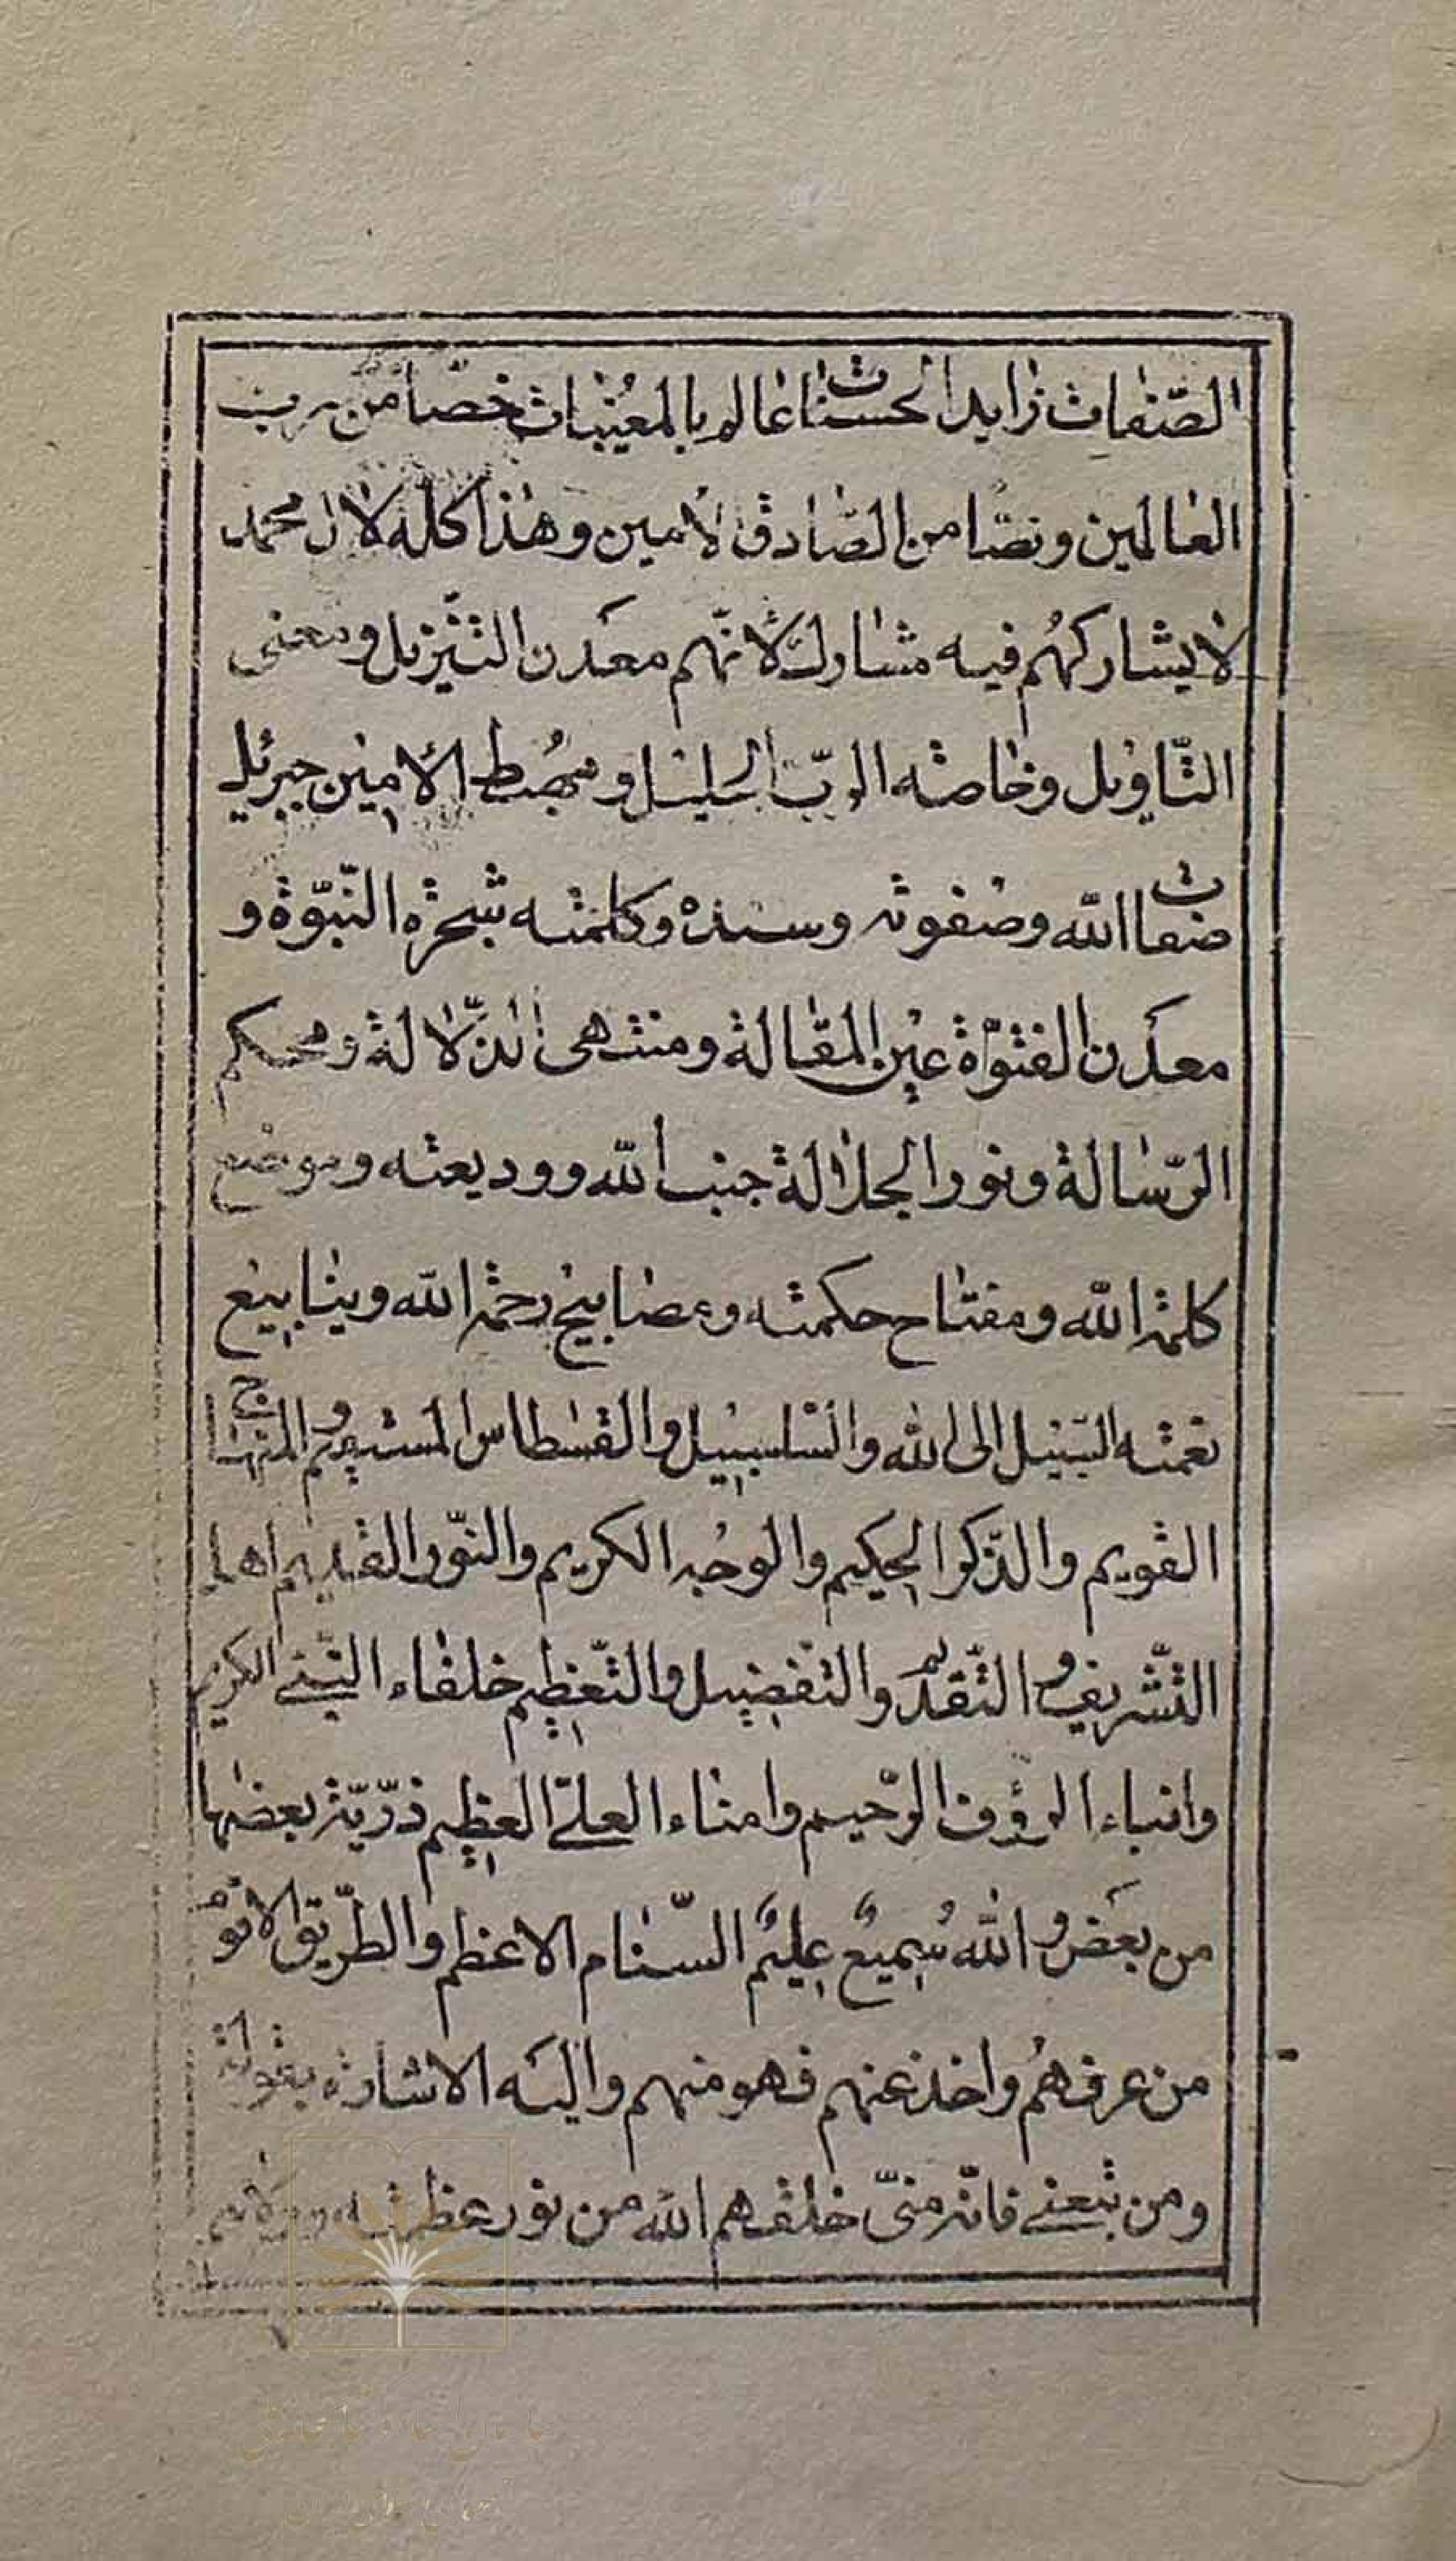 الصّفات زايد الحسنات عالم بالمغيبات خصّا من رب
العالمين ونصّا من الصّادق الامين وهذا كله لال محمد
لا يشاركهم فيه مشارك لانّهم معدن التنزيل ومعنى
التاويل وخاصه الربّ الجليل ومهبط الامين جبرئيل
صفات الله وصفوته وسره وكلمته شجره النّبوّة و
معدن الفتوّة عين المقالة ومنتهى الدّلالة ومحكم
الرّسالة ونور الجلالة جنب الله ووديعته وموضع
كلمة الله ومفتاح حكمته ومصابيح رحمة الله وينابيع
نعمته السبيل الى الله والسلسبيل والقسطاس المستقيم والمنهاج
القويم والذّكر الحكيم والوجه الكريم والنّور القديم اهل
التّشريف والتّقديم والتفضيل والتّعظيم خلفاء النّبي الكريم
وانباء الرؤف الرّحيم وامناء العليّ العظيم ذرّيّة بعضها
من بعض والله سميع عليم السّنام الاعظم والطّريق الاقوم
من عرفهم واخذ عنهم فهو منهم واليه الاشارة بقوله
ومن تبعني فانّه منّي خلقهم الله من نور عظمته